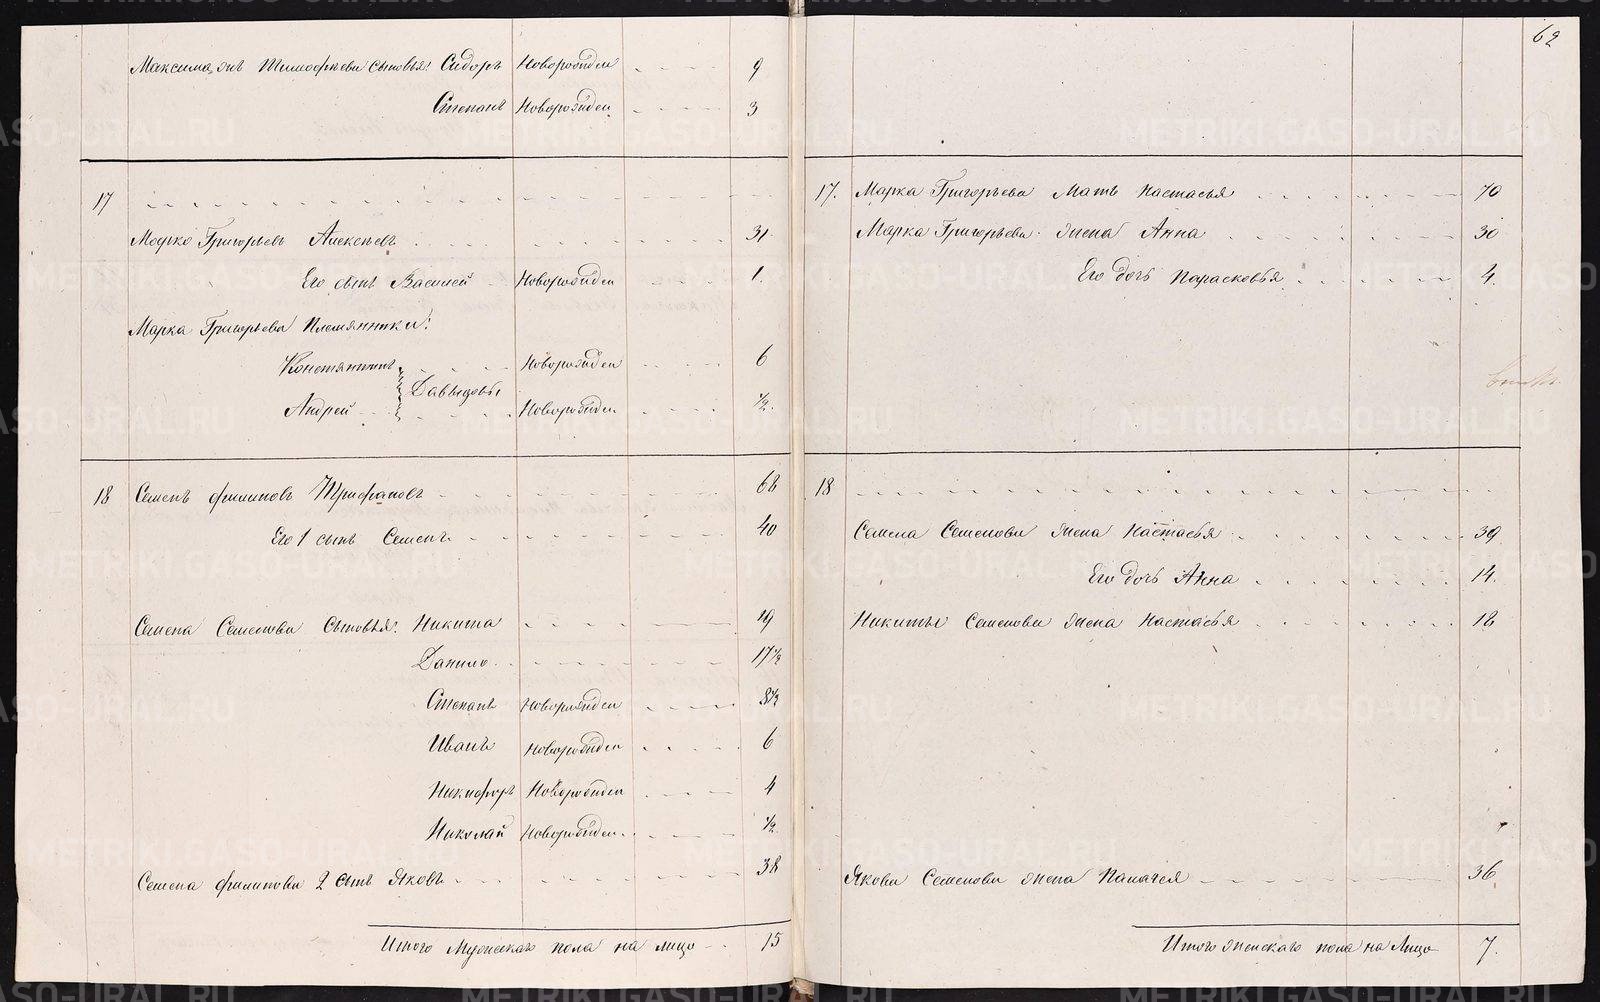 62
Максима, их Тимофеева сыновья: Сидоръ Новорожден 9
Степанъ Новорожден 3
17
Марко Григорьевъ Алексеевъ 31.
Его сынъ Василей Новорожден 1.
Марка Григорьева Племянники:
Констянтинъ Новорожден 6
Давыдовы
Андрей Новорожден ½.
18 Семенъ Филиповъ Трифановъ 68
Его 1 сынъ Семенъ 40
Семена Семенова Сыновья: Никита 19
Данило 17½
Степанъ Новорожден 8½
Иванъ Новорожден 6
Никифоръ Новорожден 4
Николай Новорожден ½
Семена Филипова 2 сынъ Яковъ 38
Итого Мужескаго пола на лицо 15
17. Марка Григорьева Мать Настасья 70
Марка Григорьева жена Анна 30
Его дочь Парасковья 4.
18
Семена Семенова жена Настасья 39
Его дочь Анна 14.
Никиты Семенова жена Настасья 18
Якова Семенова жена Палагея 36
Итого женскаго пола на Лицо 7.
METRIKI.GASO-URAL.RU